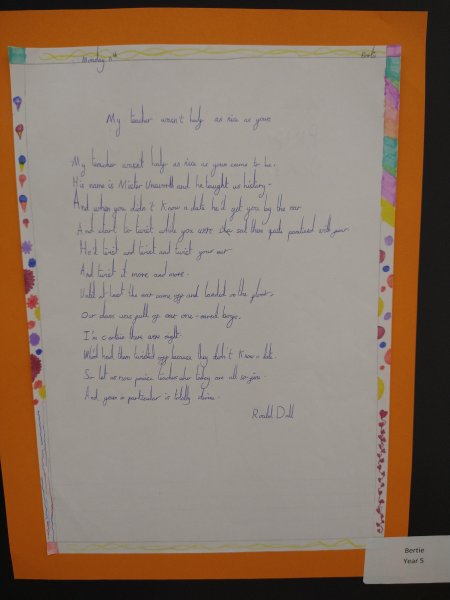 Monday
Poetry
My teacher wasn't half as nice as yours
My teacher wasnt half as nice as yours seems to be.
His name is Mister Unsworth and he taught us history.
And when you didn't know a date he'd get you by the ear
And start to twist while you sat there quite paralysed with fear
He'd twist and twist and twist your ear
And twist it more and more.
Until at last the ear came off and landed on the floor.
Our class was full of one-eared boys.
I'm certain there were eight
Who'd had them twisted off because they didn't know a date.
So let us now praise teachers who today are all so fine
And yours in particular is totally divine.
Roald Dahl
Bertie
Year 5